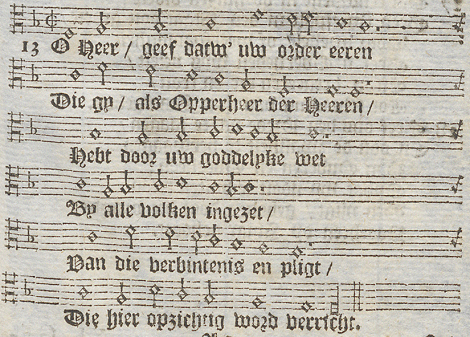 13 O Heer / geef datw' uw order eeren
Die gy / als Opperheer der Heeren /
Hebt door uw goddelyke wet
By alle volken ingezet /
Van die verbintenis en pligt /
Die hier opzichtig word verricht.